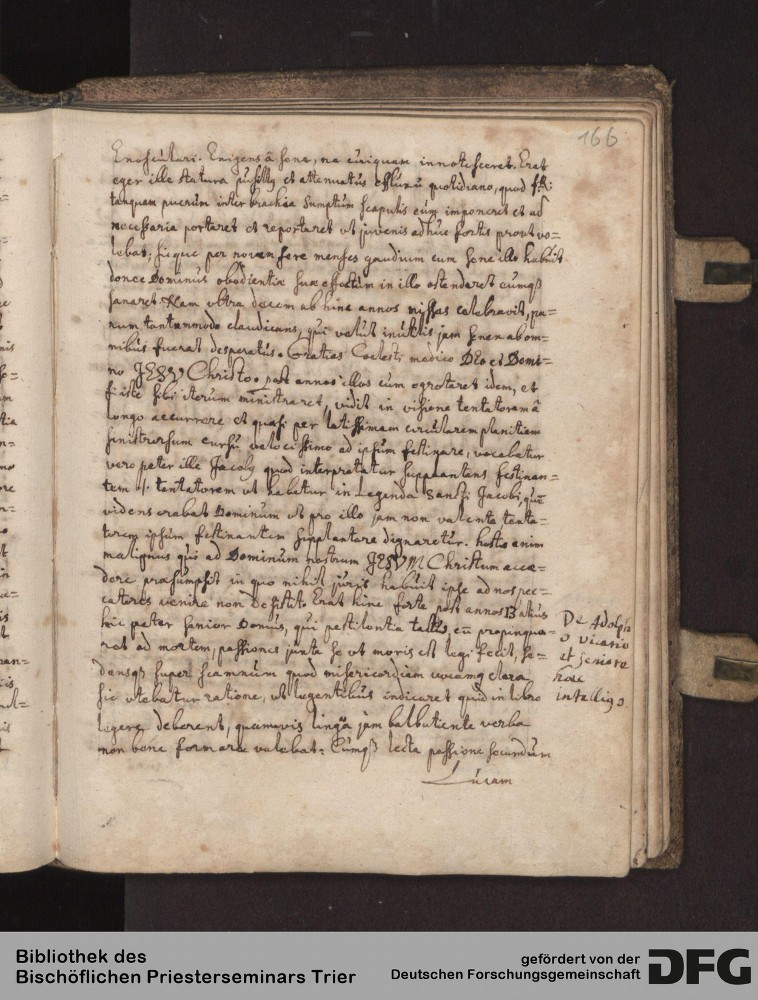 166
Enosculari. Exigens â sene, ne cuiquam innotesceret. Erat
eger ille statura pusillq et attenuatus effluxu quotidiano, quod
tanquam puerum inter brachia sumptum scapulis eum imponeret et ad
necessaria portaret et reportaret ut juvenis adhuc fortis prout vo=
lebat; sicque per novem fere menses gaudium cum sene illo habuit
donec Dominus obedientiæ suæ effectum in illo ostenderet eumqȝ
sanaret. Nam ultra decem ab hinc annos missas celebravit, pa=
rum tantummodo claudicans, qui velut inutilis jam senex ab om=
nibus fuerat desperatus. Gratias Coelesti medico DEo et Domi=
no JESV Christo. post annos illos cum egrotaret idem, et
iste sibi iterum ministraret, vidit in visione tentatorem â
longo accurrere et quasi per latissimam circularem planitiem
sinistrorsum cursu velocissimo ad ipsum festinare, vocabatur
vero pater ille Jacobq quod interpretatur supplantans festinan=
tem tentatorem ut habetur in Legenda Sancti Jacobi, quē
videns orabat Dominum ut pro illo jam non valente tenta=
torem ipsum festinantem supplantare dignaretur. hostis enim
malignus qui ad Dominum nostrum JESVM Christum acce=
dere præsumpsit in quo nihil juris habuit ipse ad nos pec=
catores venire non desistit. Erat hinc forte post annos 13 alius
hic pater senior Domus, qui pestilentia tactus, cū propinqua=
ret ad mortem, passiones juxta se ut moris est legi fecit, se=
densqȝ super scamnum quod misericordiam vocamq clara
sic utebatur ratione, ut legentibus indicaret quid in libro
legere deberent, quamvis lingua jam balbutiente verba
non bene formare valebat: Cumqȝ lecta passione secundum
Lucam
De Adolph
o vicario
et seniore
hoc
intelligo.
Bibliothek des
Bischöflichen Priesterseminars Trier
gefördert von der
Deutschen Forschungsgemeinschaft
DFG